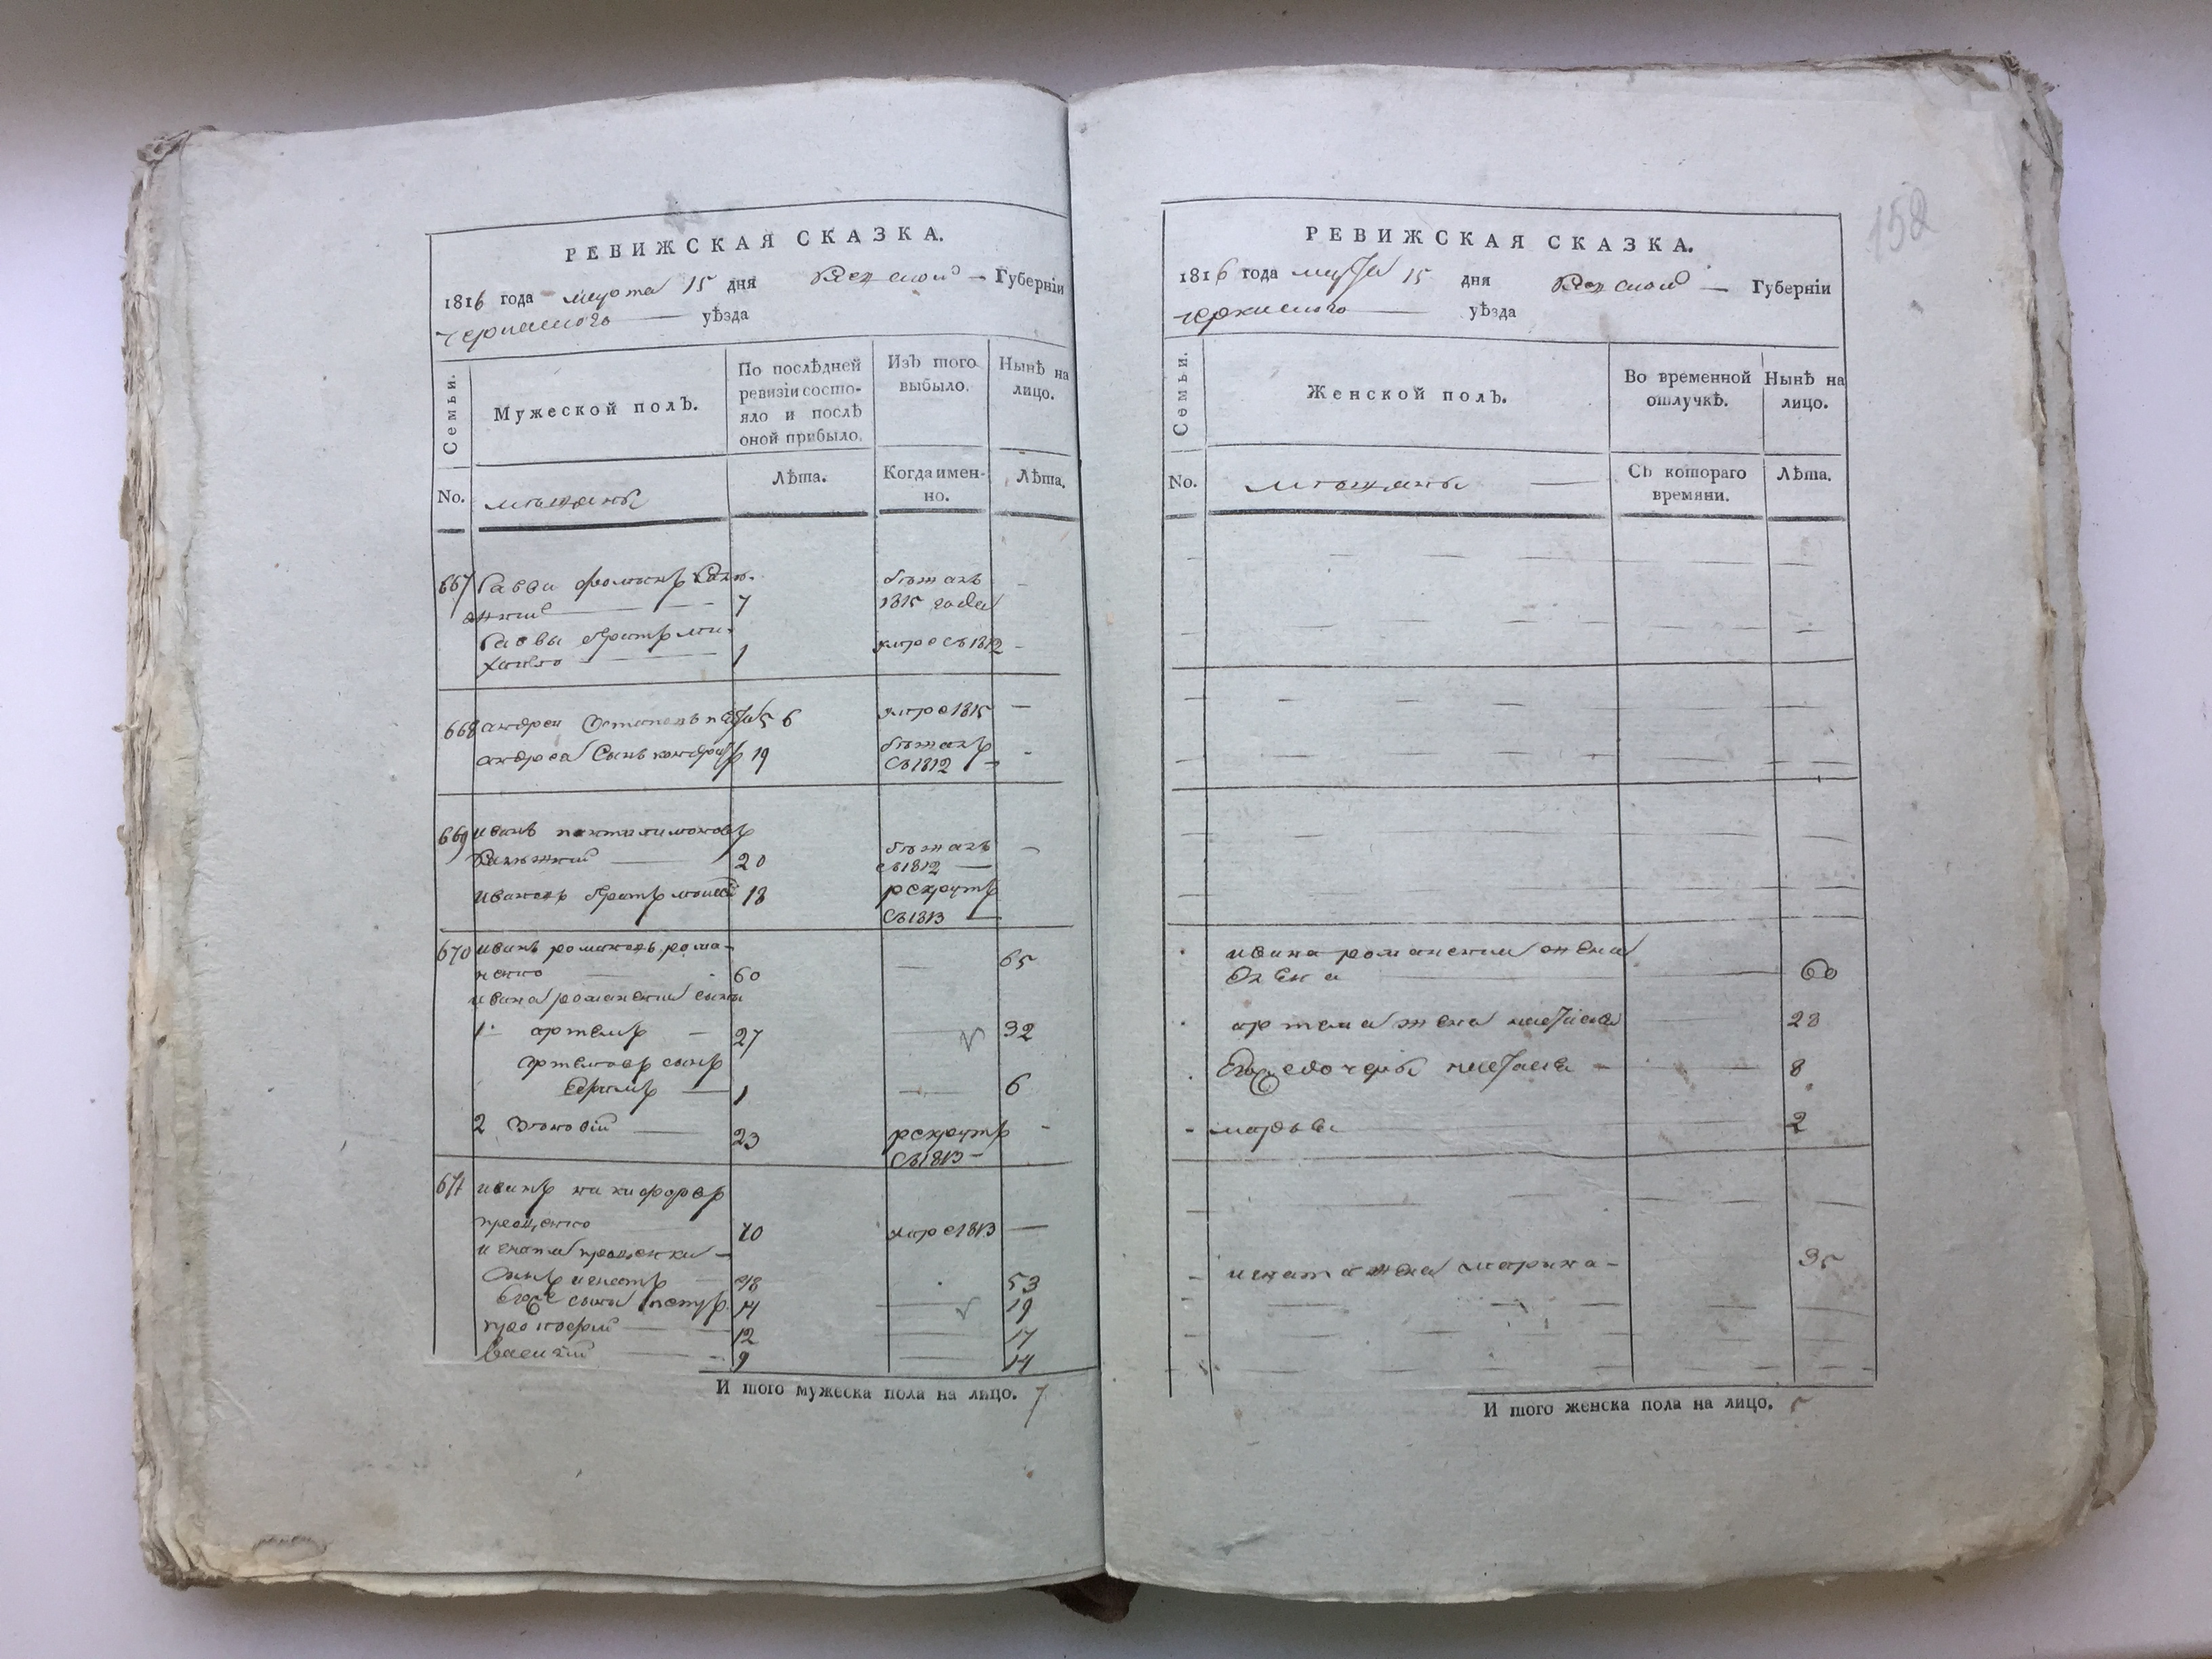 РЕВИЖСКАЯ СКАЗКА.
1816 года марта 15 дня Киевской Губерніи
Черкаского уѣзда
Семьи.
Мужеской полЪ.
По послѣдней ревизіи состояло и послѣ оной прибыло.
ИзЪ того выбыло.
Нынѣ на лицо.
No.
мѣщанѣ
Лѣта.
Когда именно.
Лѣта.
667 Савва
7
бѣжалъ
1815 года
Саввы братъ ми-
хайло 1
умре съ 1812
668 андрей 56 умре 1815
андрея сынъ кондратъ 19
бѣжалъ
съ 1812
669 иванъ пантилимоновъ
20
бѣжалъ
съ 1812
ивановъ братъ моисей 18
рекрутъ
съ 1813
670 иванъ романовъ рома-
ненко 60 65
ивана романенки сыны
1 артемъ 27 32
артемовъ сынъ
ефимъ 1 6
2 23
рекрутъ
съ 1813
671 иванъ никифоровъ
проценко 70 умре 1813
игната проценки
сынъ игнатъ 48 53
его сыны петръ 14 19
прокофій 12 17
василій 9 14
И того мужеска пола на лицо. 7
152
РЕВИЖСКАЯ СКАЗКА.
1816 года марта 15 дня Киевской Губерніи
черкаского уѣзда
Семьи.
Женской полЪ.
Во временной отлучкѣ.
Нынѣ на лицо.
No.
мѣщанѣ
СЪ котораго времяни.
Лѣта.
ивана романенки жена
олена 60
артема жена настася 28
его дочери настася 8
марья 2
игната жена марина 35
И того женска пола на лицо. 5